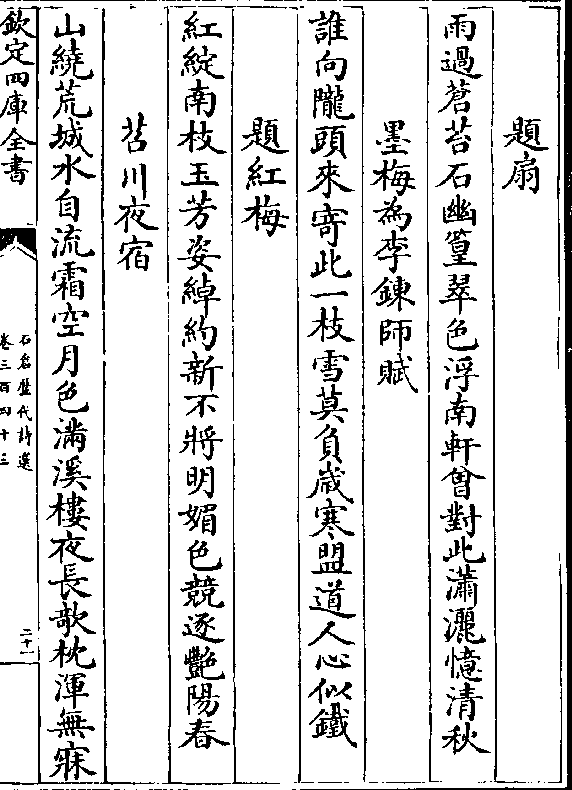 題扇
雨過蒼苔石幽篁翠色浮南軒曾對此瀟灑憶清秋
墨梅為李鍊師賦
誰向隴頭來寄此一枝雪莫負歲寒盟道人心似鐵
題紅梅
紅綻南枝玉芳姿綽約新不將明媚色競逐艷陽春
苕川夜宿
山繞荒城水自流霜空月色滿溪樓夜長欹枕渾無寐
欽定四庫全書
石倉歷代詩選
卷三百四十三
二十一